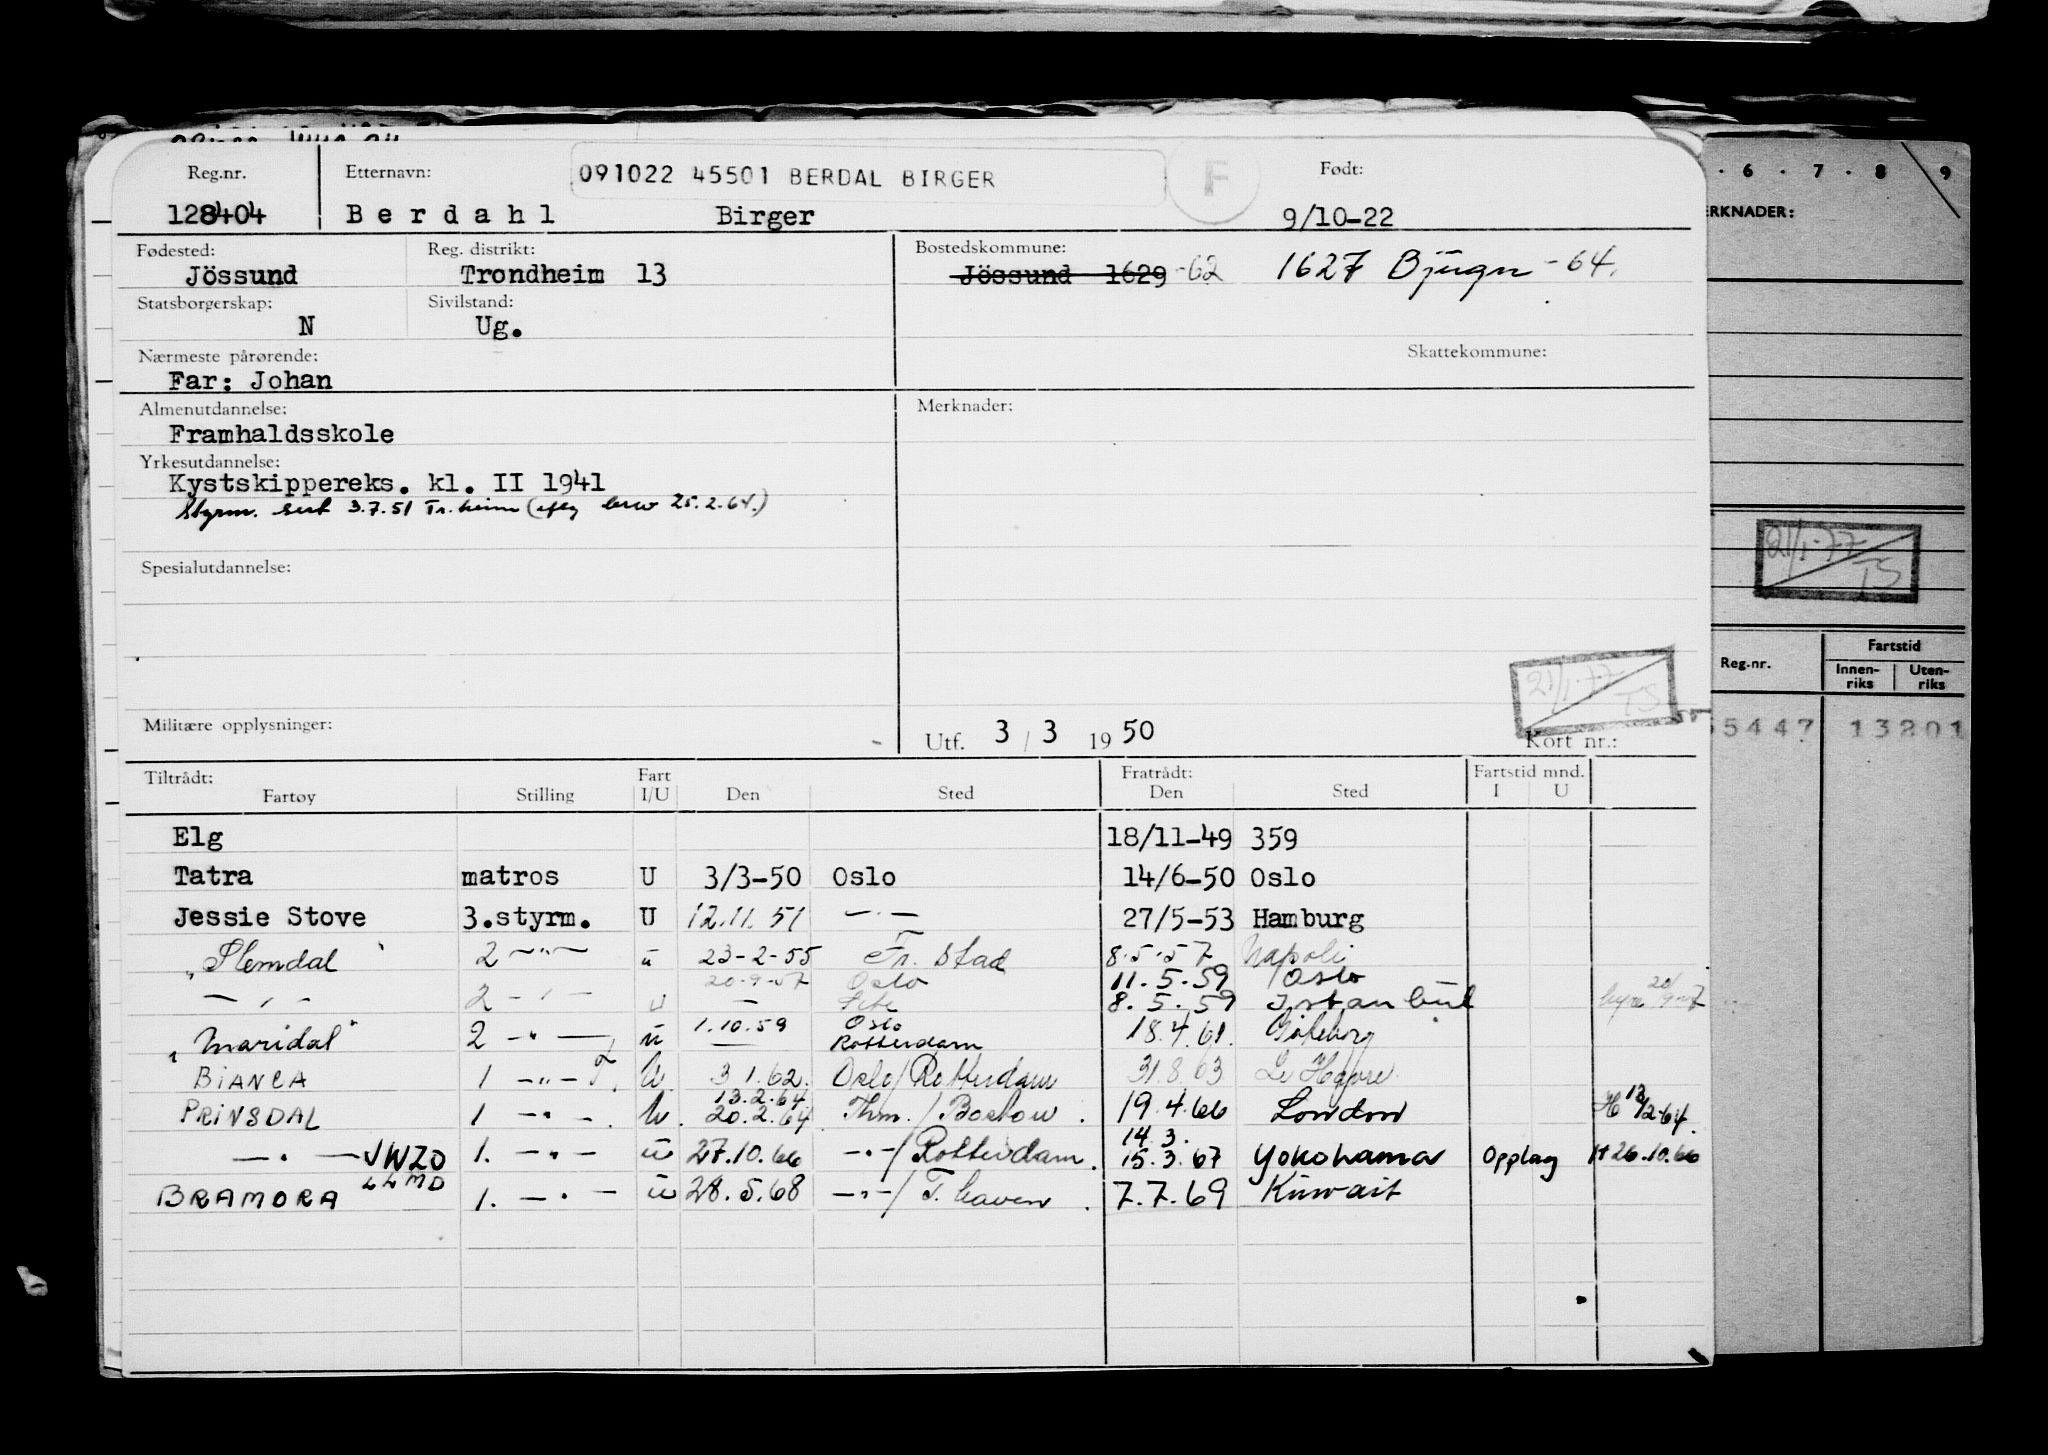 Reg.nr. Etternavn: 091022 45501 BERDAL BIRGER F Født:
128404 Berdahl Birger 9/10-22
Fødested: Reg. distrikt: Bostedskommune:
Jössund Trondheim 13 Jössund 1629 -62 1627 Bjugn -64.
Statsborgerskap: Sivilstand:
N Ug.
Nærmeste pårørende: Skattekommune:
Far: Johan
Almenutdannelse: Merknader:
Framhaldsskole
Yrkesutdannelse:
Kystskippereks. kl. II 1941
Styrm. sert 3.7.51 Tr.heim 25.2.64.)
Spesialutdannelse:
21/1-77 TS
Militære opplysninger: Utf. 3 / 3 19 50 Kort nr.:
Tiltrådt: Fart Fratrådt: Fartstid mnd.
Fartøy Stilling I/U Den Sted Den Sted I U
Elg 18/11-49 359
Tatra matros U 3/3-50 Oslo 14/6-50 Oslo
Jessie Stove 3.styrm. U 12.11.51 —"— 27/5-53 Hamburg
"Slemdal" 2 —"— u 23-2-55 Fr. stad 8.5.57 Napoli
20.9.57 Oslo 11.5.59 Oslo
—"— 2 —"— u — 8.5.59 Istanbul
1.10.59 Oslo
"Maridal" 2 —"— u — Rotterdam 18.4.61. Göteborg
BIANCA 1 —"— U. 3 1.62. Oslo/Rotterdam 31.8.63 Le Havre.
13.2.64
PRINSDAL 1 —"—. U. 20.2.64 Thm./Boston. 19.4.66 London H 13/2-64.
14.3.
—"— JWZO 1. —"— u 27.10.66 —"—/Rotterdam. 15.3.67 Yokohama Opplag H 26.10.66
LLMD
BRAMORA 1. —"— u 28.5.68 —"—/T. haven. 7.7.69 Kuwait
. 6 . 7 . 8 9
RKNADER:
21/1-77 TS
Reg-nr. Fartstid
Innen-riks Uten-riks
55447 13201